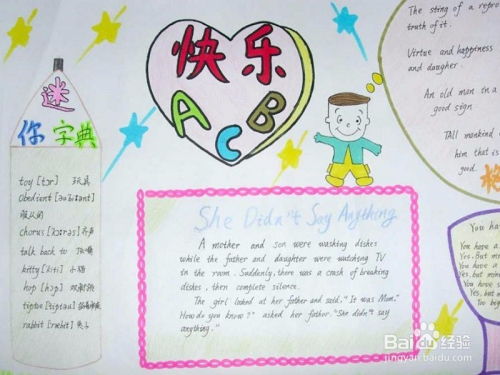 快乐
A C B
迷
你字典
toy [tɔr] 玩具
Obedient
服从的
chorus 齐声
talk back to 顶嘴
kitty [kiti] 小猫
hop [hɔp]
tiptoe [tiptəu]
rabbit [ræbit] 兔子
She Didn't Say Anything
A mother and son were washing dishes
while the father and daughter were watching TV
in the room. Suddenly, there was a crash of breaking
dishes, then complete silence.
The girl looked at her father and said, "It was Mum."
How do you know?" asked her father. "She didn't say
anything."
The sting of a repro
truth of it.
Virtue and happiness
and daugher.
An old man in a
good sign
Tall mankind
him that is
good.
You ha
You have a
Yes. But min
You have a
Yes. but my
You have
Yes. but
Too big
begin
Baidu 经验
jingyan.baidu.com